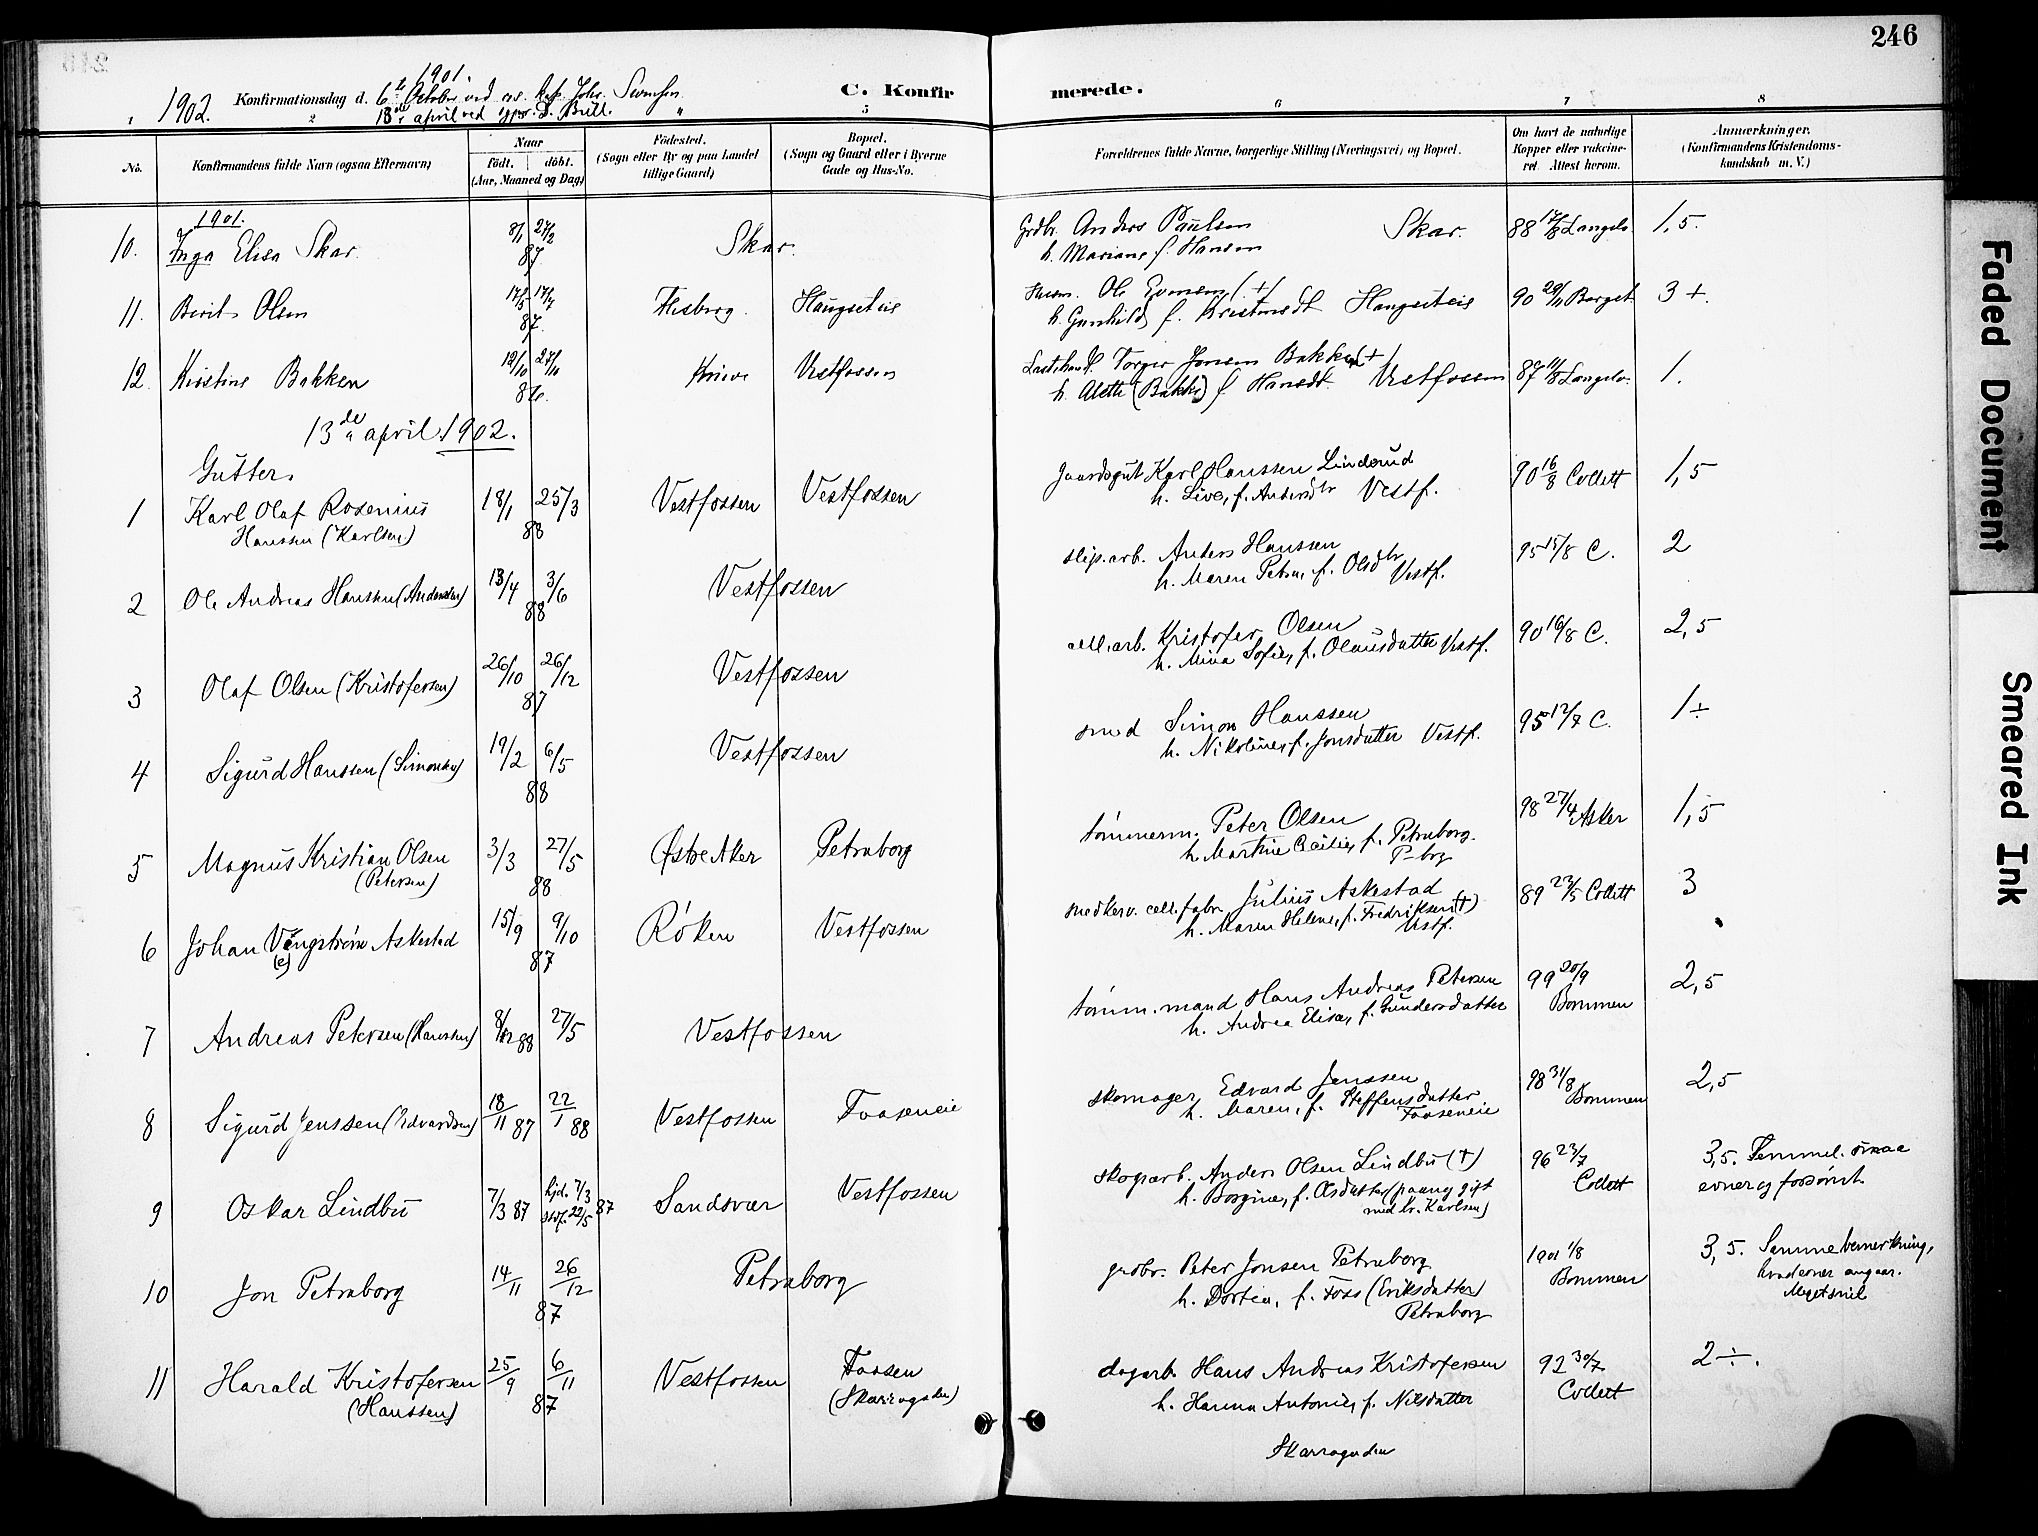 246
1901.
1902. Konfirmationsdag d. 6te October ved
13de april ved D. Brill.
C. Konfirmerede.
1 2 5 6 7 8
No.
Konfirmandens fulde Navn (ogsaa Efternavn)
Naar
født. døbt.
(Aar, Maaned og Dag)
Födested.
(Sogn eller By og paa Landet tillige Gaard)
Bopæl.
(Sogn og Gaard eller i Byerne Gade og Hus-No.
Forældrenes fulde Navne, borgerlige Stilling (Næringsvei) og Bopæl.
Om havt de naturlige Kopper eller vakcineret. Attest herom.
Anmærkninger.
(Konfirmandens Kristendomskundskab m. V.)
1901.
10. Inga Elisa Skar. 8/1 27/2 87 Skar. Grdbr. Anders Paulsen Skar. 88 17/8 Langelv. 1,5.
h. Mariane f. Hansen
11. Berit Olsen 17/5 17/7 87. Flesberg. Haugseteie Husm. Ole Evensen (+) Haugseteie 90 20/11 Borget 3+.
h. Gunhild f. Kristensdt
12. Kirstine Bakken 12/10 27/11 86. Vestfossen Torger Jonsen Bakken (+) Vestfossen 87 11/8 Langelv. 1.
h. Alette (Bakke) f. Hansdt.
13de april 1902.
Gutter.
1 Karl Olaf Rosenius 18/1 25/3 88 Vestfossen Vestfossen gaardsgut Karl Hanssen Linderud 90 16/8 Collett 1,5
Hanssen (Karlsen) h. Live, f. Andersdtr Vestf.
2 Ole Andreas Hanssen (Anderssen) 13/4 3/6 88 Vestfossen slip.arb. Anders Hanssen 95 15/8 C. 2
h. Maren Petra, f. Olsdtr Vestf.
3 Olaf Olsen (Kristofersen) 26/10 26/12 87 Vestfossen cell.arb. Kristofer Olsen 90 16/8 C. 2,5
h. Mina Sofie, f. Olausdatter Vestf.
4 Sigurd Hanssen (Simonsen) 19/2 6/5 88 Vestfossen smed Simon Hanssen 95 12/7 C. 1÷
h. Nikoline, f. Jonsdatter Vestf.
5 Magnus Kristian Olsen 3/3 27/5 88 Østre Aker Petraborg tømmerm. Peter Olsen 98 27/4 Asker 1,5
(Petersen) h. Martine Cecilie, f. Petraborg.
P-brg
6 Johan Vengstrøm Askestad 15/9 9/10 87 Røken Vestfossen cell.fabr. Julius Askestad 89 22/5 Collett 3
(e) h. Maren Helene, f. Fredriksen (+)
Vestf.
7 Andreas Petersen (Hanssen) 88 27/5 Vestfossen tømm.mand Hans Andreas Petersen 99 20/9 2,5
h. Andrea Elise, f. Gundersdatter Bommen
8 Sigurd Jenssen (Edvardsen) 18/11 87 22/1 88 Vestfossen Faaseneie skomager Edvard Jenssen 98 31/8 2,5
h. Maren, f. Steffensdatter Bommen
Faaseneie
9 Oskar Lindbu 7/3 87 hjd. 7/3 stdf. 22/5 87 Sandsvær Vestfossen skogsarb. Anders Olsen Lindbu (+) 96 23/7 3,5. Temmel. smaa
h. Borgine, f. Olsdatter (paany gift Collett evner og forsømt.
med br. Karlsen)
10 Jon Petraborg 14/11 26/12 87 Petraborg grdbr. Peter Jonsen Petraborg 1901 1/8 3,5. Samme bemerkning,
h. Dortea, f. Foss (Eriksdatter) Bommen hvad evner angaar.
Petraborg Meget snil
11 Harald Kristofersen 25/9 6/11 87 Vestfossen Faasen dagarb. Hans Andreas Kristofersen 92 30/7 2÷.
(Hanssen) (Skarragaden) h. Hanna Antonie, f. Nilsdatter Collett
Skarragaden
Faded Document
Smeared Ink